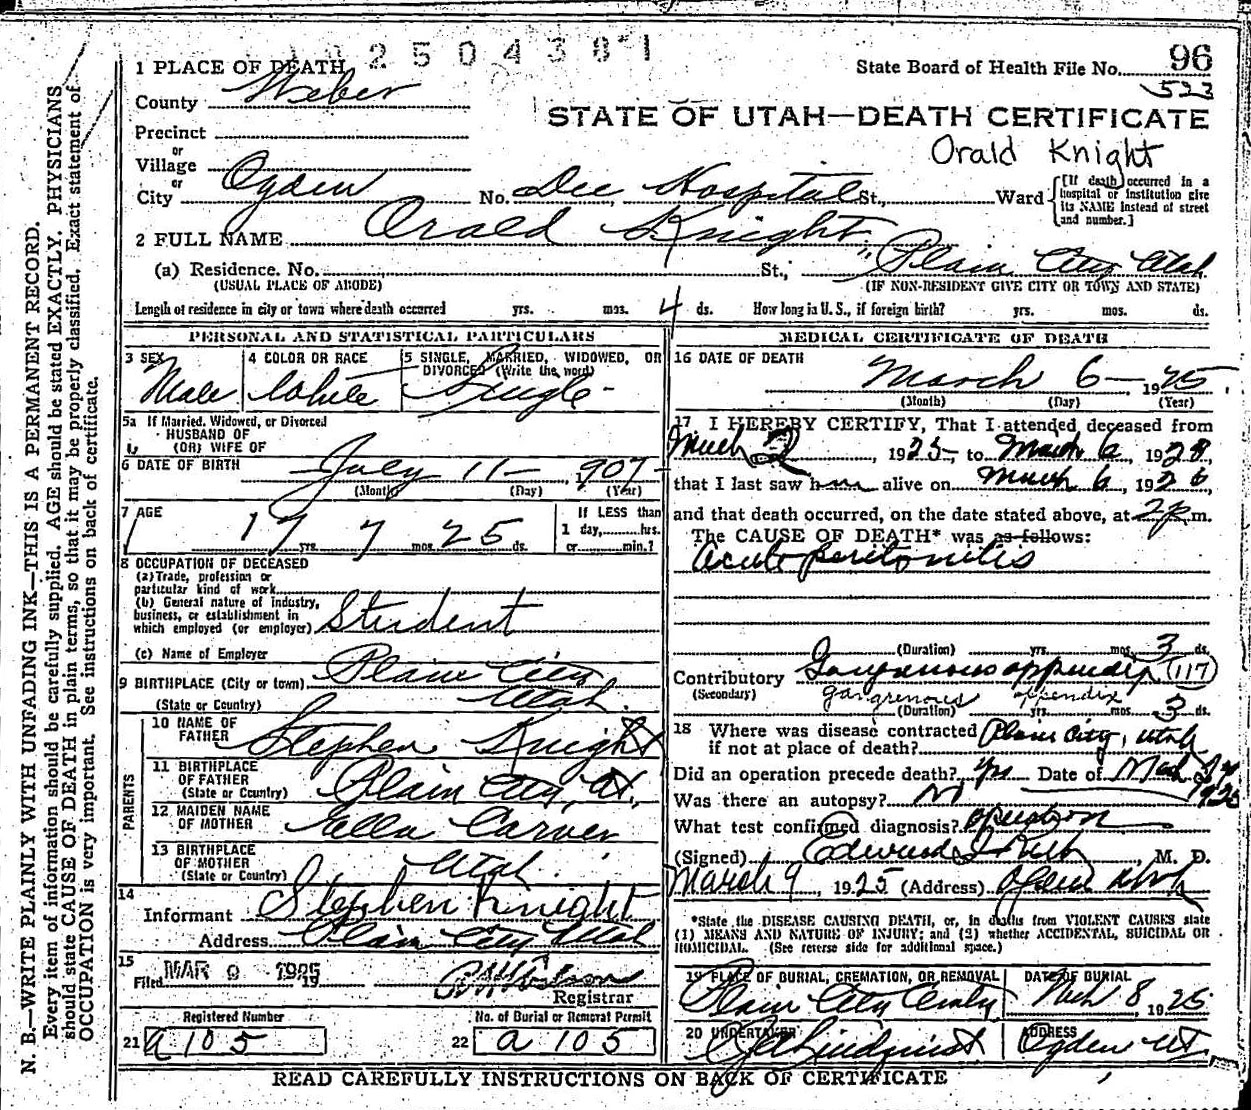 2504381
1 PLACE OF DEATH
State Board of Health File No. 96
523
County Weber
STATE OF UTAH—DEATH CERTIFICATE
Precinct
or
Orald Knight
Village
or
City Ogden No. Dee Hospital St., Ward {[If death occurred in a hospital or institution give its NAME instead of street and number.]
2 FULL NAME Orald Knight
(a) Residence. No. St., Plain City Utah
(USUAL PLACE OF ABODE) (IF NON-RESIDENT GIVE CITY OR TOWN AND STATE)
Length of residence in city or town where death occurred yrs. mos. 4 ds. How long in U. S., if foreign birth? yrs. mos. ds.
PERSONAL AND STATISTICAL PARTICULARS
3 SEX Male
4 COLOR OR RACE White
5 SINGLE, MARRIED, WIDOWED, OR DIVORCED (Write the word) Single
5a If Married, Widowed, or Divorced
HUSBAND OF
(OR) WIFE OF
6 DATE OF BIRTH July 11 - 1907
(Month) (Day) (Year)
7 AGE 17 yrs. 7 mos. 25 ds.
If LESS than
1 day, hrs.
or min.?
8 OCCUPATION OF DECEASED
(a) Trade, profession or
particular kind of work
(b) General nature of industry,
business, or establishment in
which employed (or employer) Student
(c) Name of Employer
9 BIRTHPLACE (City or town) Plain City
(State or Country) Utah
PARENTS
10 NAME OF FATHER Stephen Knight
11 BIRTHPLACE OF FATHER (State or Country) Plain City, Ut.
12 MAIDEN NAME OF MOTHER Ella Carver
13 BIRTHPLACE OF MOTHER (State or Country) Utah
14
Informant Stephen Knight
Address Plain City Utah
15
Filed MAR 9 1925
19
Registrar
Registered Number No. of Burial or Removal Permit
21 a 105 22 a 105
MEDICAL CERTIFICATE OF DEATH
16 DATE OF DEATH
March 6 - 1925
(Month) (Day) (Year)
17 I HEREBY CERTIFY, That I attended deceased from
March 2, 1925 to March 6, 1928,
that I last saw him alive on March 6, 1926,
and that death occurred, on the date stated above, at 2 p.m.
The CAUSE OF DEATH* was as follows:
Acute peritonitis
(Duration) yrs. mos. 3 ds.
Contributory Gangrenous appendix (117)
(Secondary) gangrenous appendix
(Duration) yrs. mos. 3 ds.
18 Where was disease contracted Plain City, Utah
if not at place of death?
Did an operation precede death? Yes Date of Mch 1925
Was there an autopsy? No
What test confirmed diagnosis? operation
(Signed) M. D.
March 9, 1925 (Address) Ogden Utah
*State the DISEASE CAUSING DEATH, or, in deaths from VIOLENT CAUSES state
(1) MEANS AND NATURE OF INJURY; and (2) whether ACCIDENTAL, SUICIDAL OR
HOMICIDAL. (See reverse side for additional space.)
19 PLACE OF BURIAL, CREMATION, OR REMOVAL DATE OF BURIAL
Plain City Mch 8 1925
20 UNDERTAKER Lindquist ADDRESS Ogden Ut.
READ CAREFULLY INSTRUCTIONS ON BACK OF CERTIFICATE
N. B.—WRITE PLAINLY WITH UNFADING INK—THIS IS A PERMANENT RECORD.
Every item of information should be carefully supplied. AGE should be stated EXACTLY. PHYSICIANS
should state CAUSE OF DEATH in plain terms, so that it may be properly classified. Exact statement of
OCCUPATION is very important. See instructions on back of certificate.